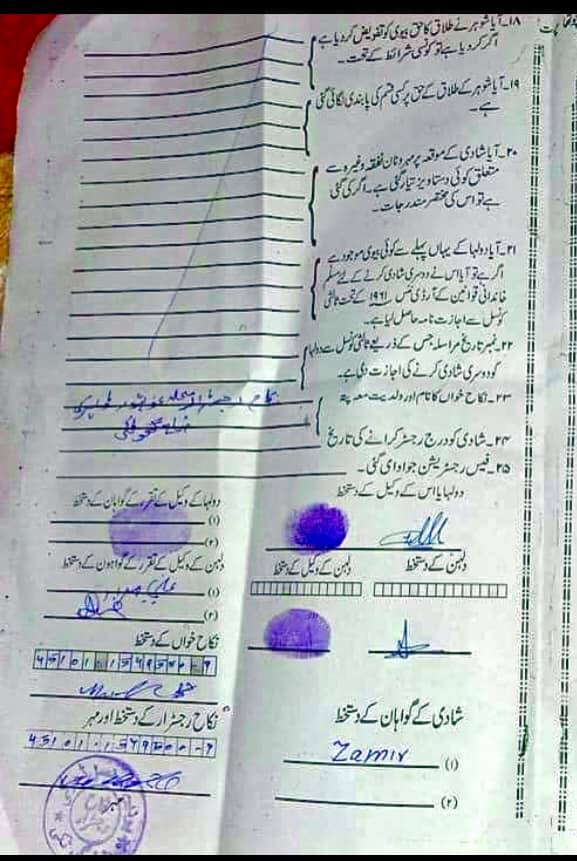 ۱۸۔ آیا شوہر نے طلاق کا حق بیوی کو تفویض کر دیا ہے
اگر کر دیا ہے تو کونسی شرائط کے تحت۔
۱۹۔ آیا شوہر کے طلاق کے حق پر کسی قسم کی پابندی لگائی گئی
ہے۔
۲۰۔ آیا شادی کے موقعہ پر مہر و نان نفقہ وغیرہ سے
متعلق کوئی دستاویز تیار کی گئی ہے۔ اگر کی گئی
ہے تو اس کی مختصر مندرجات۔
۲۱۔ آیا دولہا کے یہاں پہلے سے کوئی بیوی موجود ہے
اگر ہے تو آیا اس نے دوسری شادی کرنے کے لیے مسلم
خاندانی قوانین کے آرڈی ننس ۱۹۶۱ کے تحت ثالثی
کونسل سے اجازت نامہ حاصل کیا ہے۔
۲۲۔ نمبر تاریخ مراسلہ جس کے ذریعے ثالثی کونسل سے دولہا
کو دوسری شادی کرنے کی اجازت دی ہے۔
۲۳۔ نکاح خواں کا نام اور ولدیت معہ پتہ
۲۴۔ شادی کو درج رجسٹر کرانے کی تاریخ
۲۵۔ فیس رجسٹریشن جو ادا کی گئی۔
دولہا یا اس کے وکیل کے دستخط
دولہا کے وکیل کے تقرر کے گواہان کے دستخط
(۱)
(۲)
دلہن کے دستخط
دلہن کے وکیل کے دستخط
دلہن کے وکیل کے تقرر کے گواہوں کے دستخط
(۱)
(۲)
نکاح خواں کے دستخط
شادی کے گواہان کے دستخط
(۱) Zamir
(۲)
نکاح رجسٹرار کے دستخط اور مہر